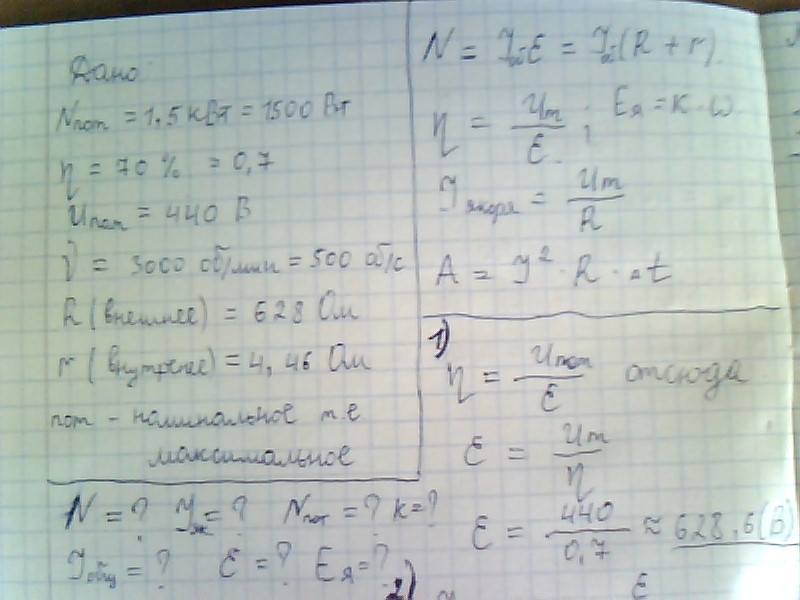 Дано
Nпот = 1,5 кВт = 1500 Вт
η = 70 % = 0,7
Uпот = 440 В
ν = 3000 об/мин = 500 об/с
R (внешнее) = 628 Ом
r (внутренее) = 4,46 Ом
пот - наминальное т.е
максимальное
N = ? Iя = ? Nпот = ? к = ?
Iобщ = ? ε = ? Eя = ?
N = Iяε = Iя(R + r)
η = Um / ε ; Eя = к · ω
Iякоря = Um / R
A = I² · R · Δt
1)
η = Uпот / ε отсюда
ε = Um / η
ε = 440 / 0,7 ≈ 628,6 (В)
2)
ε